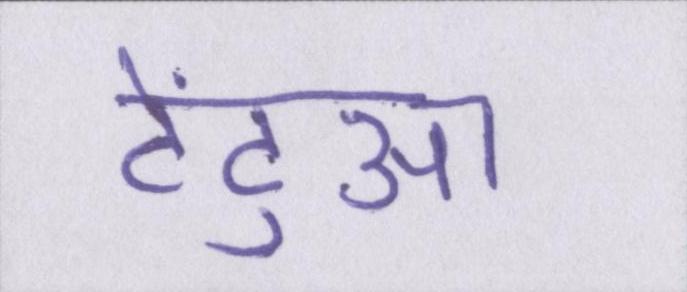 टेंटुआ